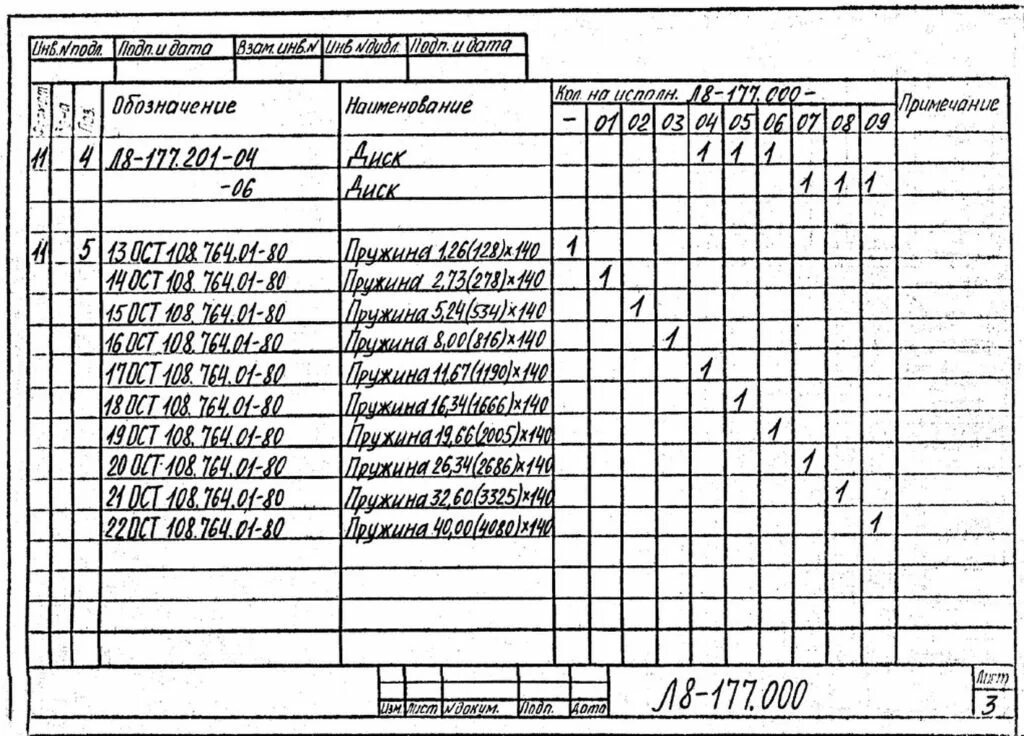 Инв.№подл. Подп. и дата Взам.инв.№ Инв.№дубл. Подп. и дата
Формат Зона Поз. Обозначение Наименование Кол. на исполн. Л8-177.000- Примечание
- 01 02 03 04 05 06 07 08 09
11 4 Л8-177.201-04 Диск 1 1 1
-06 Диск 1 1 1
11 5 13 ОСТ 108.764.01-80 Пружина 1,26(128)×140 1
14 ОСТ 108.764.01-80 Пружина 2,73(278)×140 1
15 ОСТ 108.764.01-80 Пружина 5,24(534)×140 1
16 ОСТ 108.764.01-80 Пружина 8,00(816)×140 1
17 ОСТ 108.764.01-80 Пружина 11,67(1190)×140 1
18 ОСТ 108.764.01-80 Пружина 16,34(1666)×140 1
19 ОСТ 108.764.01-80 Пружина 19,66(2005)×140 1
20 ОСТ 108.764.01-80 Пружина 26,34(2686)×140 1
21 ОСТ 108.764.01-80 Пружина 32,60(3325)×140 1
22 ОСТ 108.764.01-80 Пружина 40,00(4080)×140 1
Изм. Лист № докум. Подп. Дата Л8-177.000 Лист
3